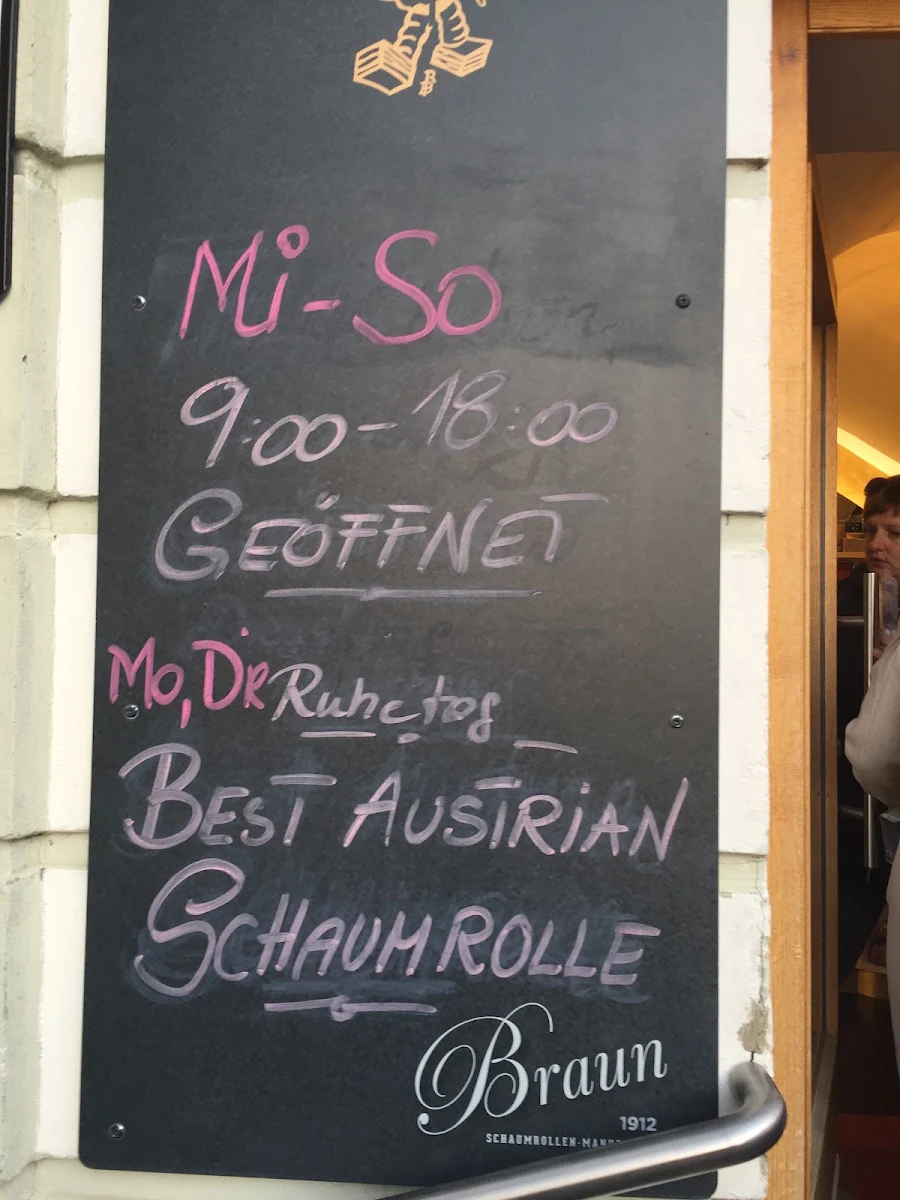 Mi - So
9:00 - 18:00
GEÖFFNET
Mo, Di Ruhetag
BEST AUSTRIAN
SCHAUMROLLE
Braun
1912